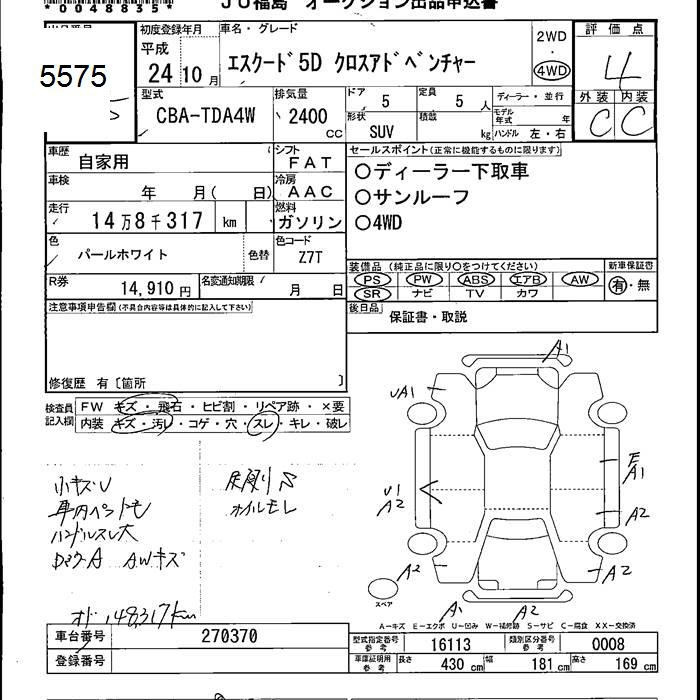 *0048835*
JU福島 オークション出品申込書
初度登録年月 車名・グレード
平成 24 10月
エスクード 5D クロスアドベンチャー
2WD
4WD
評価点
4
5575
型式
CBA-TDA4W
排気量
2400
CC
ドア 5
定員 5 人
形状 SUV
積載 kg
ディーラー・並行
モデル年式 年
ハンドル 左・右
外装 内装
C C
車歴 自家用
シフト FAT
車検 年 月( 日)
冷房 AAC
走行 14万8千317 km
燃料 ガソリン
色 パールホワイト
色替
色コード Z7T
R券 14,910円
名変通知期限 月 日
セールスポイント(正常に機能するものに限ります)
○ディーラー下取車
○サンルーフ
○4WD
装備品 (純正品に限り○をつけてください)
新車保証書
PS PW ABS エアB AW
有・無
SR ナビ TV カワ
後日品
保証書・取説
注意事項申告欄(不具合内容等は具体的に記入して下さい)
修復歴 有〔箇所 〕
検査員記入欄
FW キズ・飛石・ヒビ割・リペア跡・×要
内装 キズ・汚レ・コゲ・穴・スレ・キレ・破レ
小キズU
ハンドルスレ大
AWキズ
オイルモレ
オド148,317km
A1
UA1
E
A1
U1
A2
A2
A2
A2
スペア
A1
A2
A-キズ E-エクボ U-凹み W-補修跡 S-サビ C-腐食 XX-交換済
車台番号 270370
登録番号
型式指定番号 参考 16113
類別区分番号 参考 0008
車庫証明用 参考 長さ 430 cm 幅 181 cm 高さ 169 cm